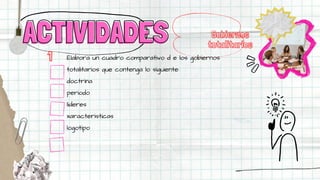 ACTIVIDADES
Gobiernos
totalitarios
1 Elabora un cuadro comparativo d e los gobiernos
totalitarios que contenga lo siguiente
doctrina
periodo
lideres
xaracteristicas
logotipo